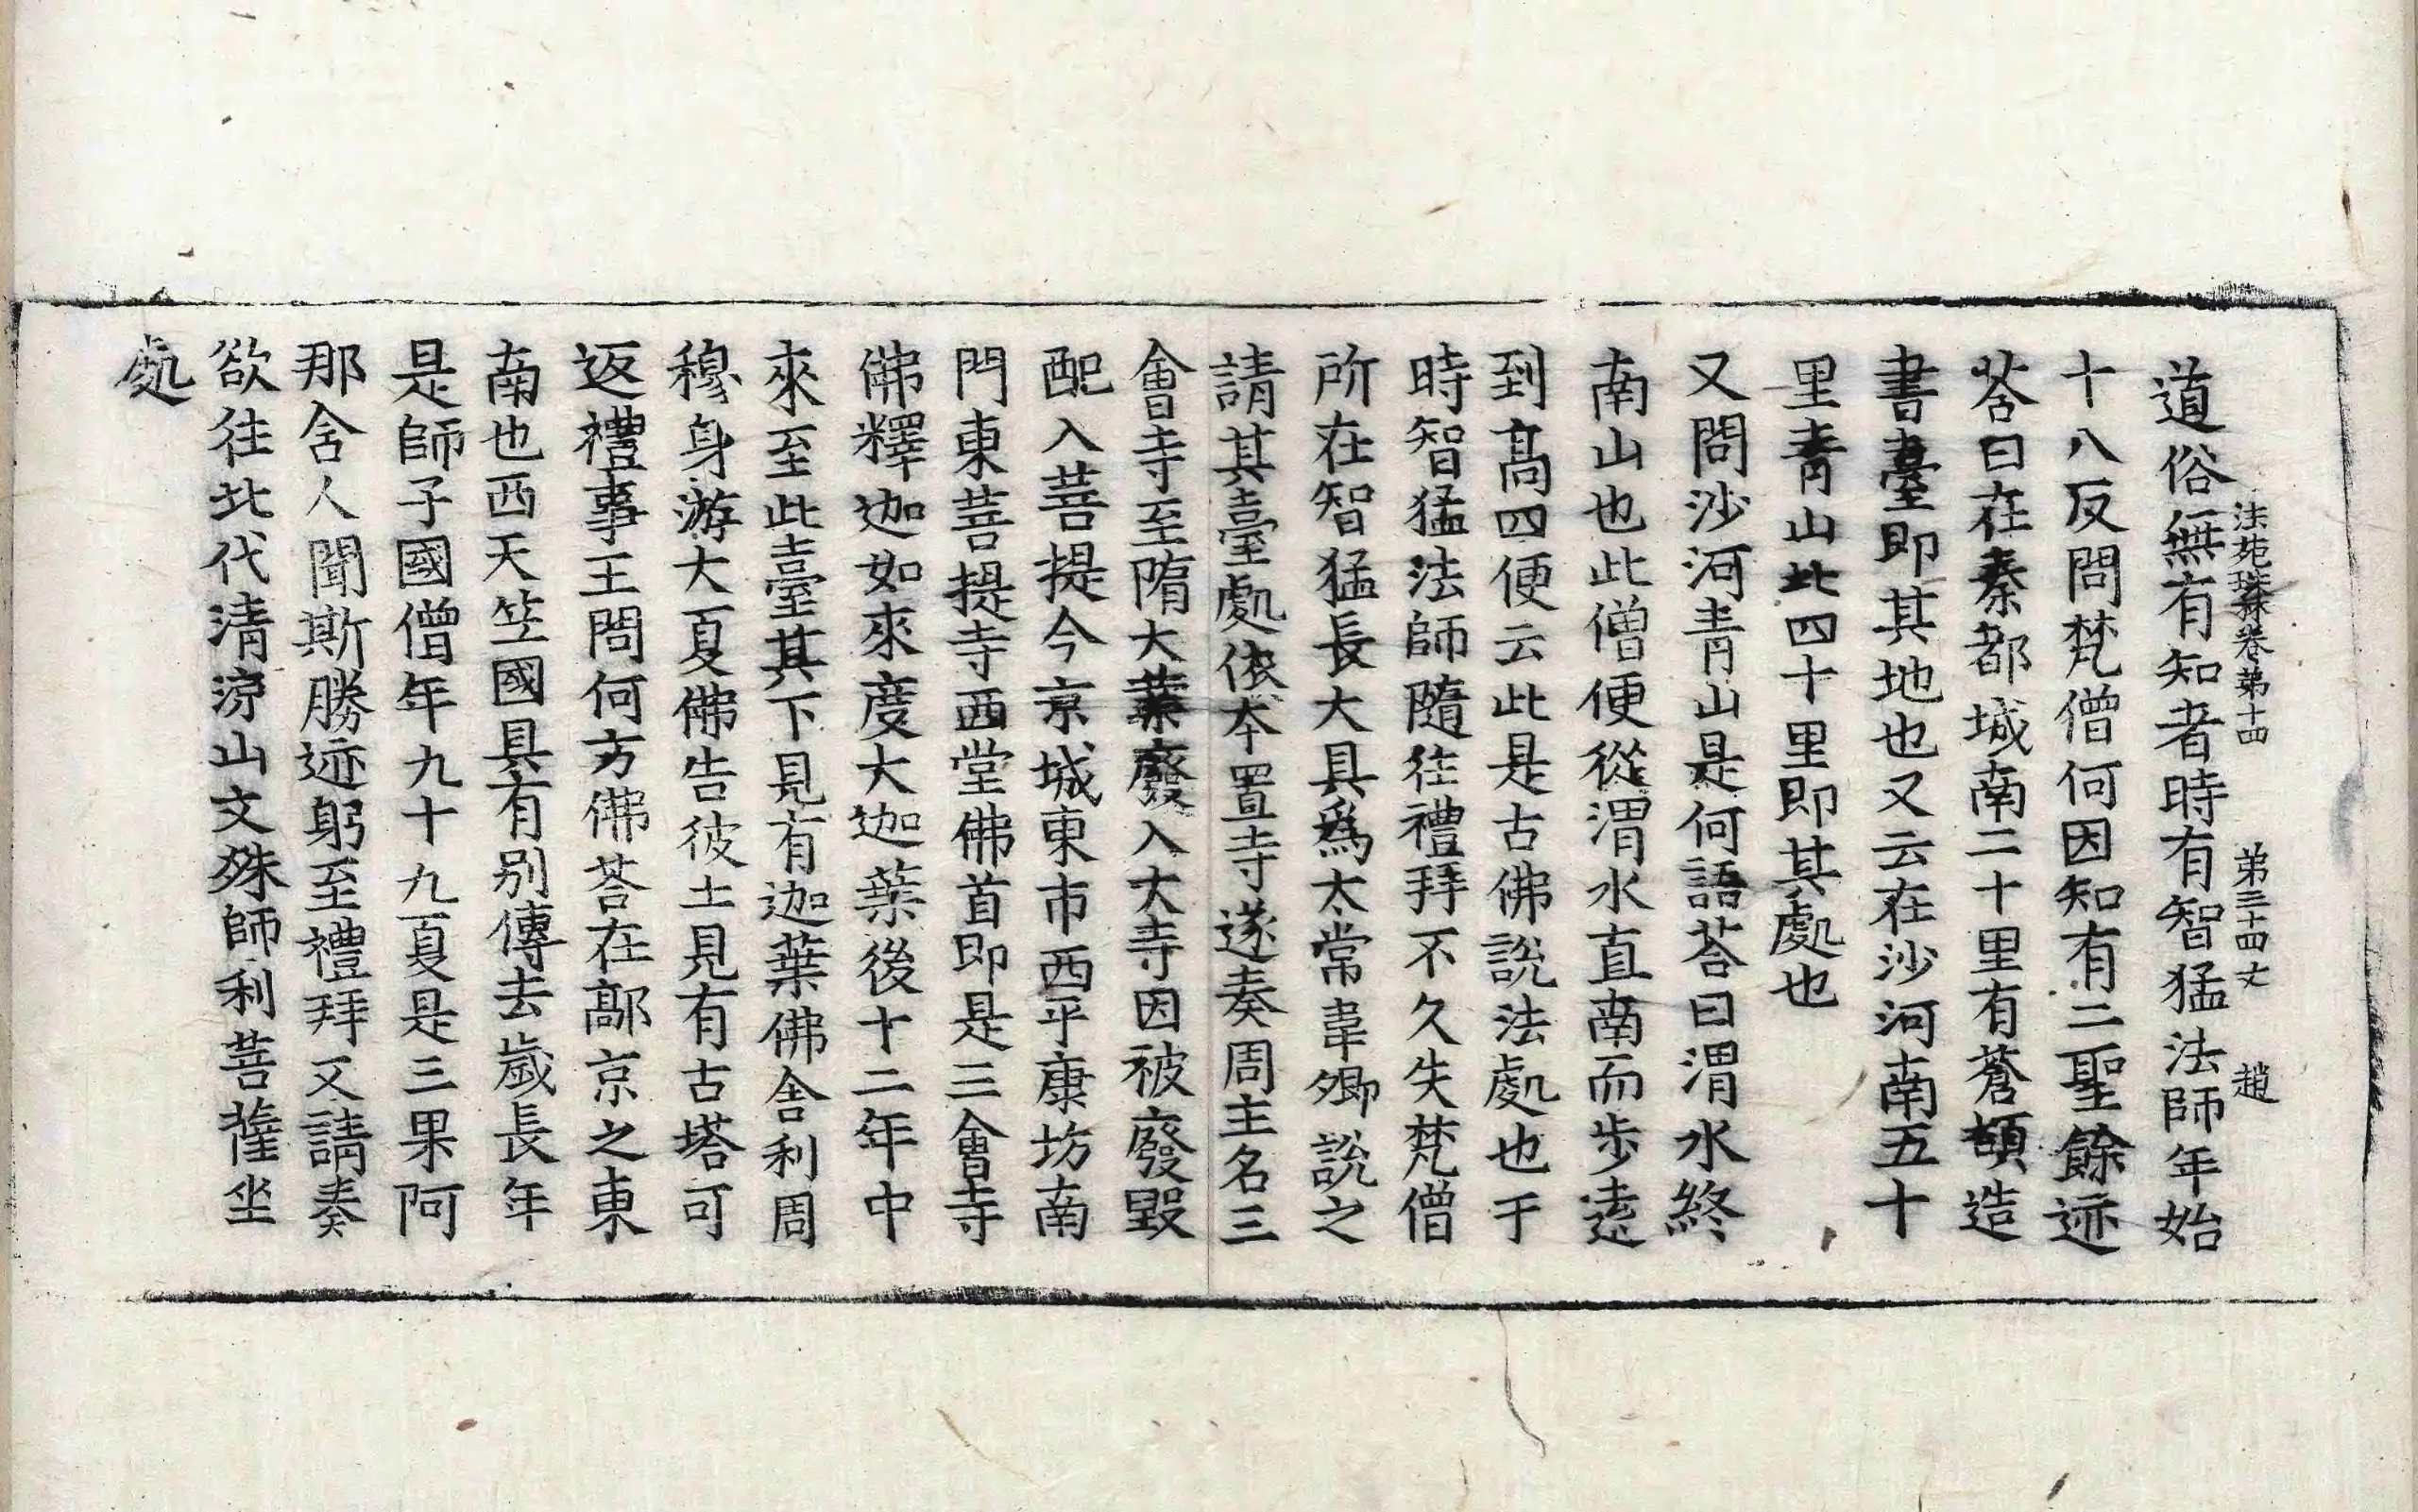 法苑珠林卷第十四 第三十四丈 趙
道俗無有知者時有智猛法師年始
十八反問梵僧何因知有二聖餘迹
荅曰在秦都城南二十里有蒼頡造
書臺即其地也又云在沙河南五十
里青山北四十里即其處也
又問沙河青山是何語荅曰渭水終
南山也此僧便從渭水直南而步遠
到高四便云此是古佛說法處也于
時智猛法師隨往禮拜不久失梵僧
所在智猛長大具爲太常韋卿說之
請其臺處依本置寺遂奏周主名三
會寺至隋大業廢入大寺因被廢毀
配入菩提今京城東市西平康坊南
門東菩提寺西堂佛首即是三會寺
佛釋迦如來度大迦葉後十二年中
來至此臺其下見有迦葉佛舍利周
穆身游大夏佛告彼土見有古塔可
返禮事王問何方佛荅在鄗京之東
南也西天竺國具有別傳去歲長年
是師子國僧年九十九夏是三果阿
那舍人聞斯勝迹躬至禮拜又請奏
欲往北代清涼山文殊師利菩薩坐
處